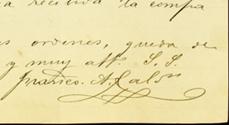 a recibida la compa
s ordenes, queda de
y muy att. S. S.
Franco. A. Cal